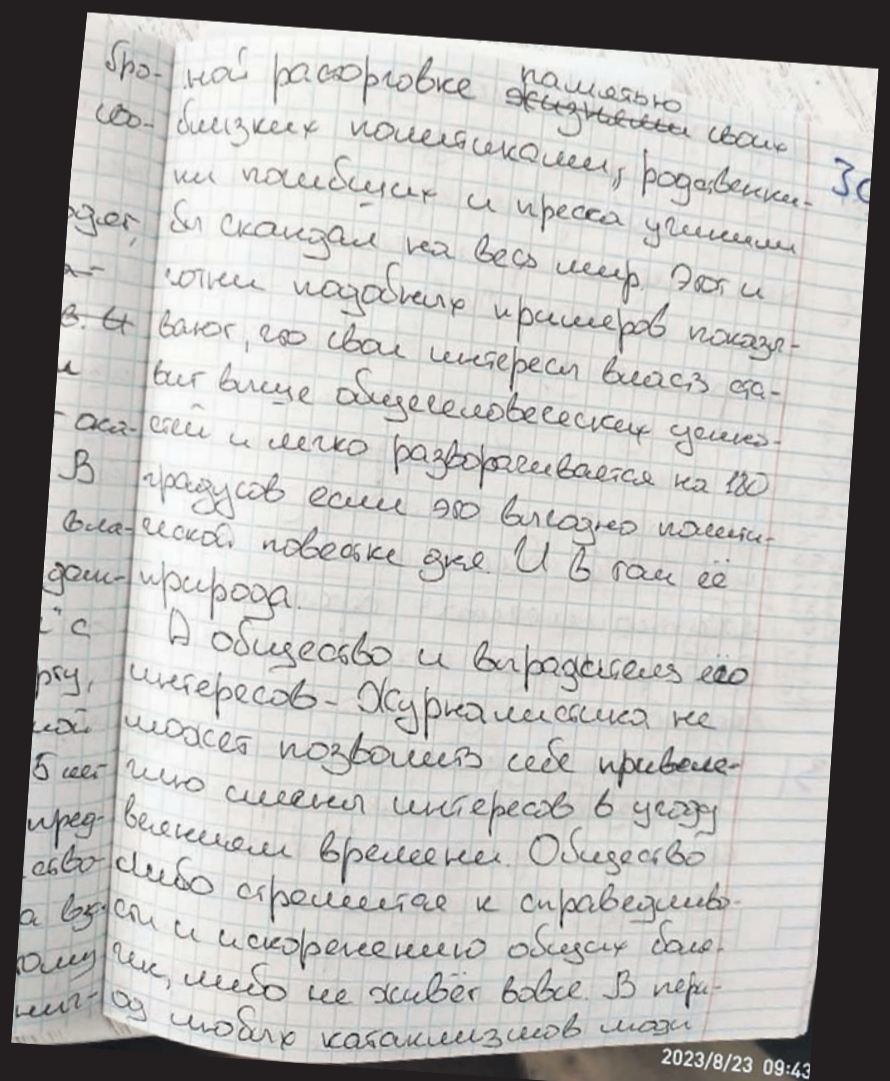 ной расторговке памятью
~~жизнями~~ своих
близких политиками, родственни-
ки погибших и пресса учинили
бы скандал на весь мир. Этот и
сотни подобных примеров показы-
вают, что свои интересы власть ста-
вит выше общечеловеческих ценно-
стей и легко разворачивается на 180
градусов если это выгодно полити-
ческой повестке дня. И в том её
природа.
А общество и выразитель его
интересов - Журналистика не
может позволить себе привеле-
гию смены интересов в угоду
веяниям времени. Общество
либо стремится к справедливо-
сти и искоренению общих боля-
чек, либо не живёт вовсе. В пери-
од любых катаклизмов люди
бро-
соо-
В
вла-
"с
рту,
ной
5 лет
пред-
ство
а вз
ому
30
2023/8/23 09:43